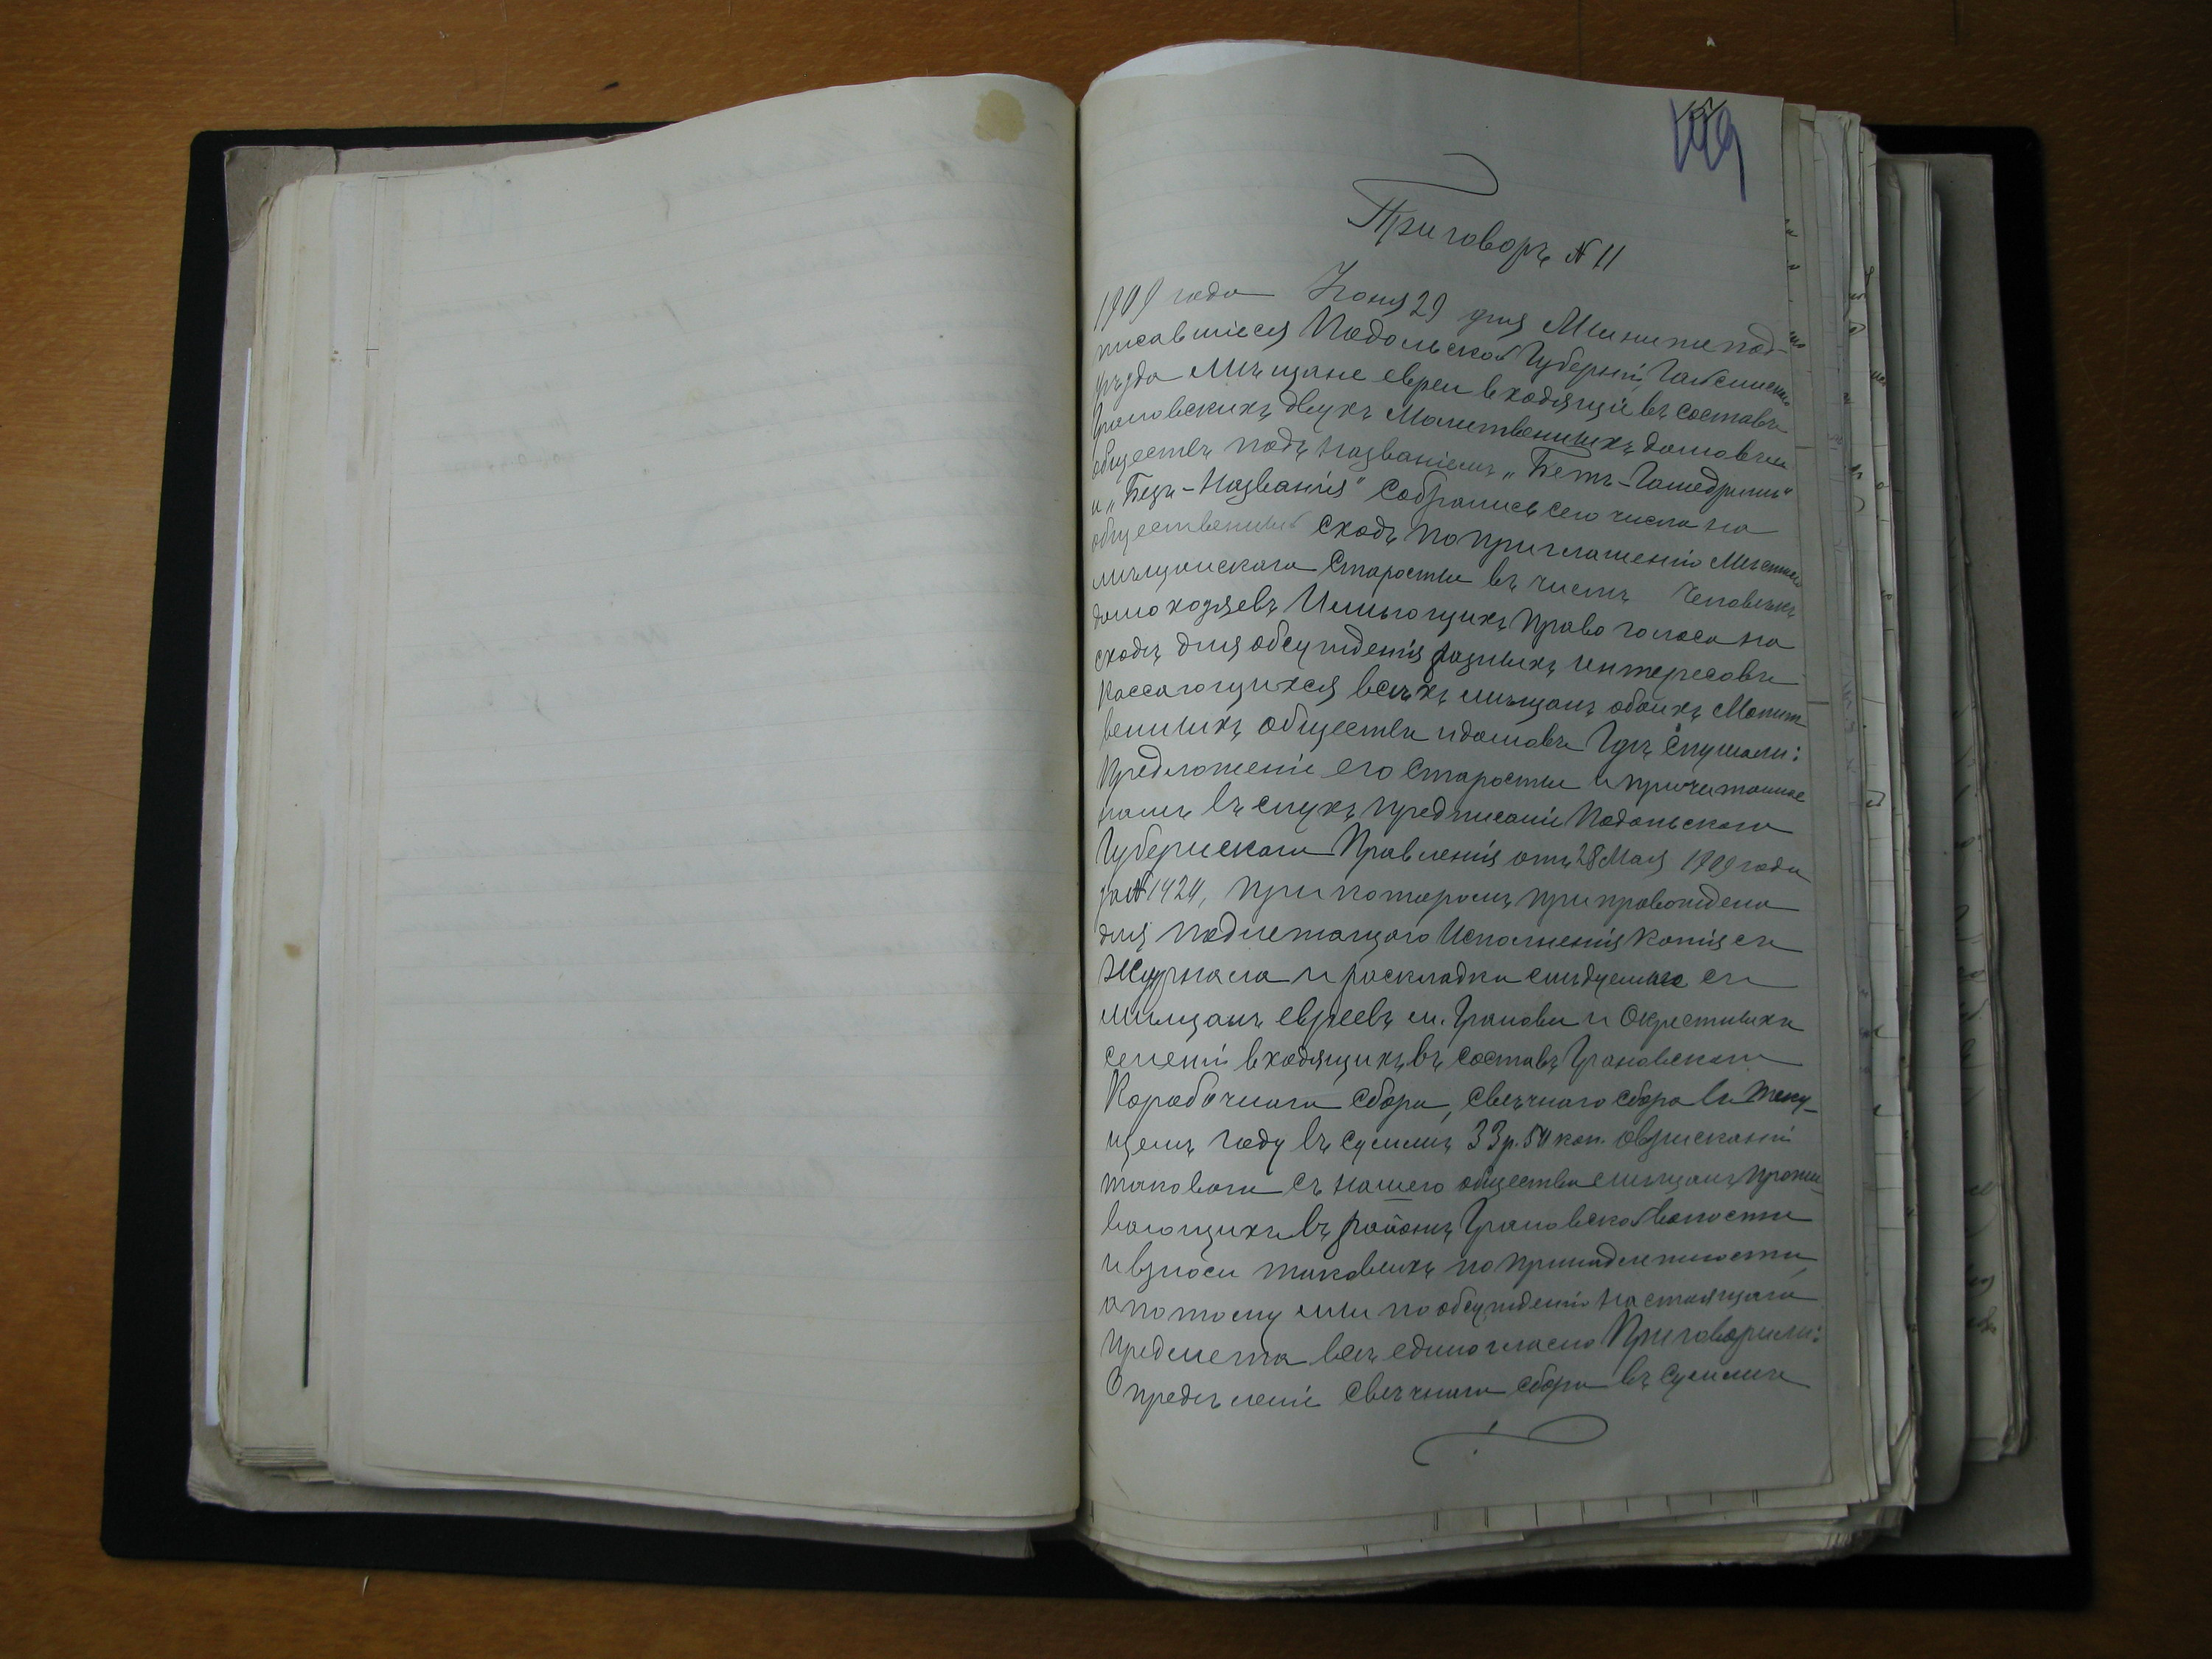 Приговоръ № 11
1909 года Іюня 29 дня Мы ниже под-
писавшіеся Подольской Губерніи, Гайсинскаго
уѣзда мѣщане евреи входящіе въ составъ
Грановскихъ двухъ Молитвенныхъ домовъ и
обществъ подъ названіемъ „Бетъ-Гамедришъ"
и „Безъ-Названія" собрались сего числа на
общественный сходъ по приглашенію Мѣстнаго
мѣщанскаго Старосты въ числѣ человѣкъ
домохозяевъ Имѣющихъ право голоса на
сходѣ для обсужденія разныхъ интересовъ
кассающихся всѣхъ мѣщанъ обоихъ Молит-
венныхъ обществъ и домовъ Гдѣ слушали:
предложеніе его Старосты и причитанное
намъ въ слухъ предписаніе Подольскаго
Губернскаго Правленія отъ 28 Мая 1909 года
за № 1424, при которомъ припровождена
для подлежащаго Исполненія копія съ
Журнала и раскладки слѣдуемаго съ
мѣщанъ евреевъ м. Грановъ и Окрестныхъ
селеній входящихъ въ составъ Грановскаго
Коробочнаго сбора, свѣчнаго сбора въ теку-
щемъ году въ суммѣ 33 р. 54 коп. о взысканіи
таковаго съ нашего общества мѣщанъ прожи-
вающихъ въ районѣ Грановской волости
и взноси таковыхъ по принадлежности,
а потому мы по обсужденіи настоящаго
предмета всѣ единогласно Приговорили:
Опредѣленіе свѣчнаго сбора въ суммѣ